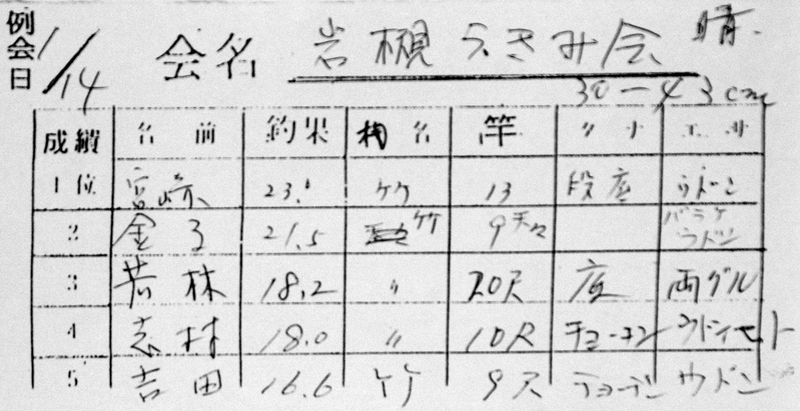 例会日 1/14 会名 岩槻うきみ会 晴.
30-43cm
成績 名前 釣果 桟名 竿 タナ エサ
1位 宮崎 23.1 竹 13 段底 ウドン
2 金子 21.5 竹 9尺 バラケ ウドン
3 若林 18.2 〃 20尺 底 両グル
4 志村 18.0 〃 10尺 チョーチン ウドンセット
5 吉田 16.6 竹 9尺 チョーチン ウドン